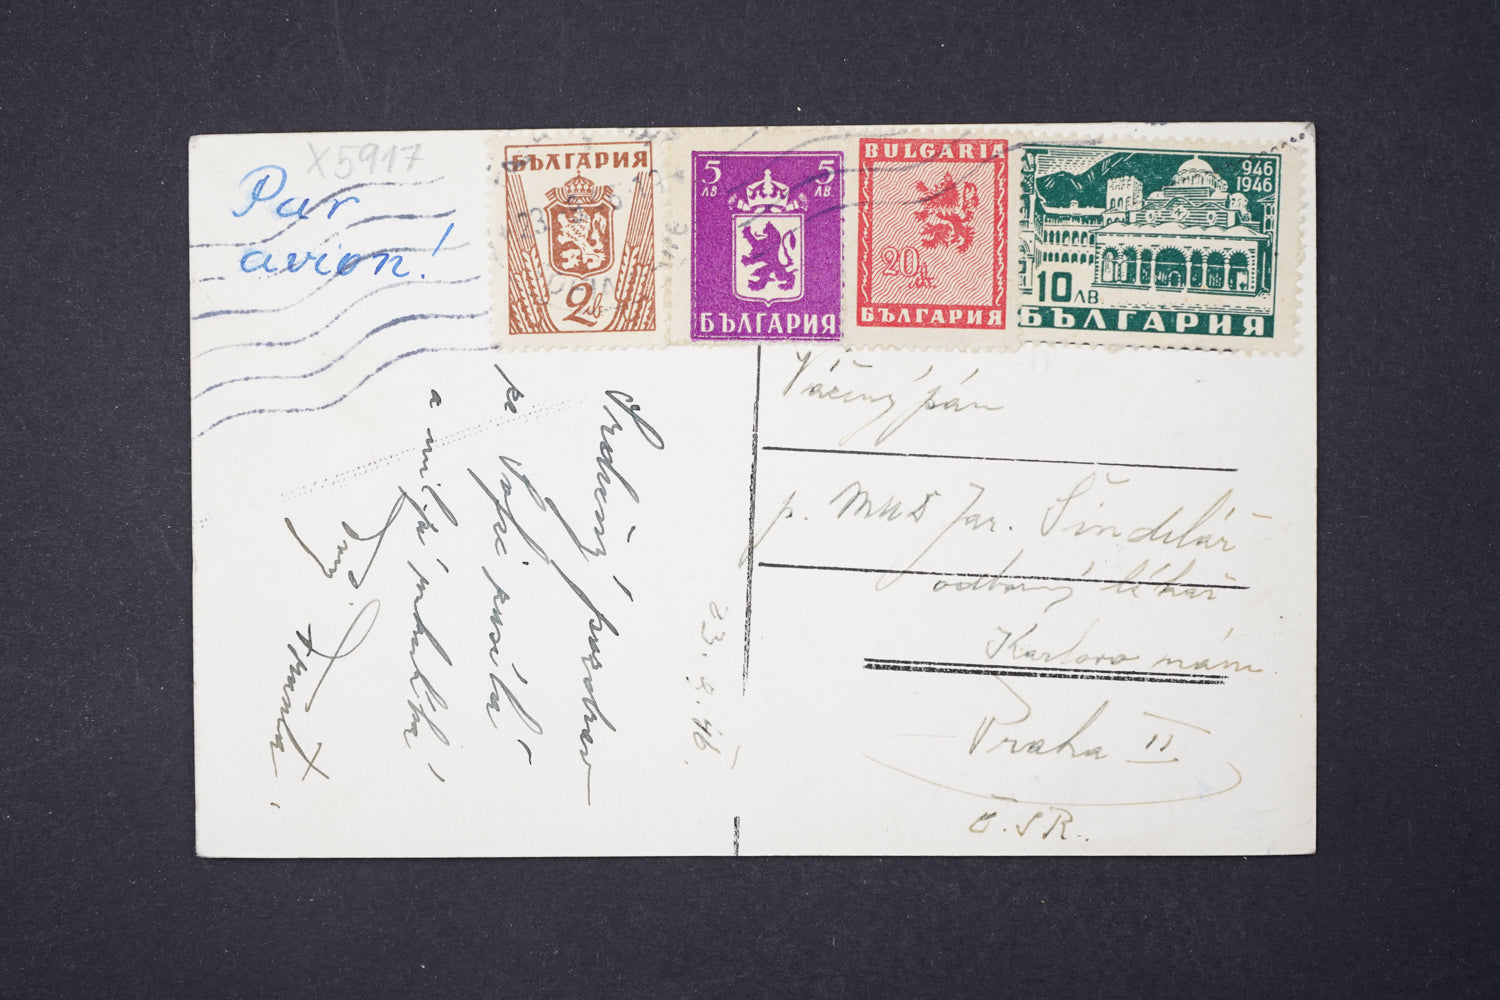 X5917
Par
avion!
БЪЛГАРИЯ
2лв
5 5
ЛВ. ЛВ.
БЪЛГАРИЯ
BULGARIA
20 лв.
БЪЛГАРИЯ
946
1946
10 ЛВ
БЪЛГАРИЯ
Srdečný pozdrav
ze Sofie zasílá
a milý
23. 9. 46.
Vážený pán
p. MUD Jar. Šindelář
odborný lékař
Karlovo nám.
Praha II
Č.S.R.